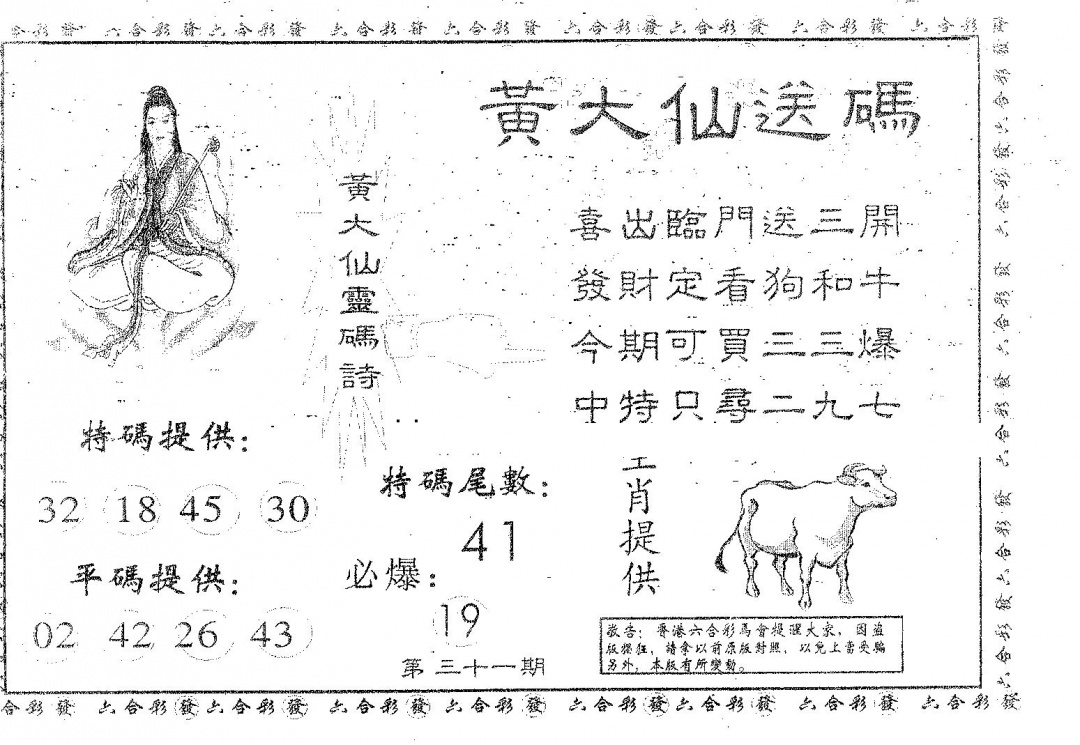 合彩發 六合彩發六合彩發 六合彩發 六合彩發 六合彩發六合彩發 六合彩發 六合彩發
黃大仙送碼
黃大仙靈碼詩
喜出臨門送三開
發財定看狗和牛
今期可買三三爆
中特只尋二九七
特碼提供：
32 18 45 30
平碼提供：
02 42 26 43
特碼尾數：
41
必爆：
19
第三十一期
肖提供
敬告：香港六合彩馬會提醒大家，因盜
版猖狂，請拿以前原版對照，以免上當受騙
另外，本版有所變動。
六合彩發六合彩發 六合彩發 六合彩發 六合彩發六合彩發
合彩發 六合彩發六合彩發 六合彩發 六合彩發 六合彩發六合彩發 六合彩發 六合彩發